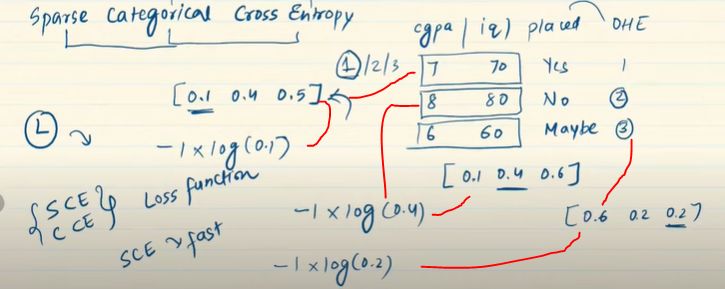 Sparse Categorical Cross Entropy
cgpa | iq | placed OHE
1/2/3
7 70 Yes 1
[0.1 0.4 0.5]
8 80 No 2
L
-1 x log(0.1)
6 60 Maybe 3
{SCE} Loss function
CCE
[0.1 0.4 0.6]
-1 x log(0.4)
[0.6 0.2 0.2]
SCE fast
-1 x log(0.2)